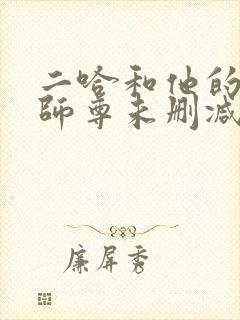 二哈和他的
师尊未删减
廉屏秀